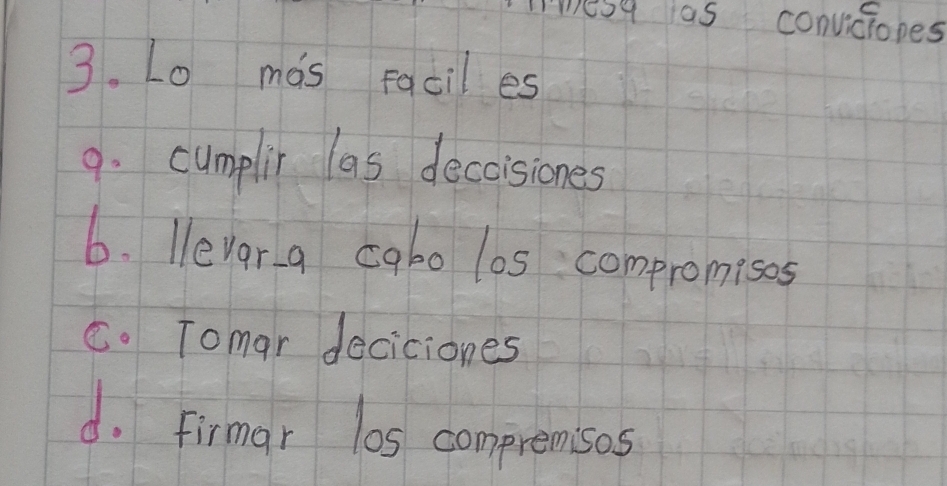 las conviciones
3. Lo más facil es
a. cumplir las deccisiones
b. llevar_a cabo los compromisos
c. Tomar deciciones
d. Firmar los compremisos